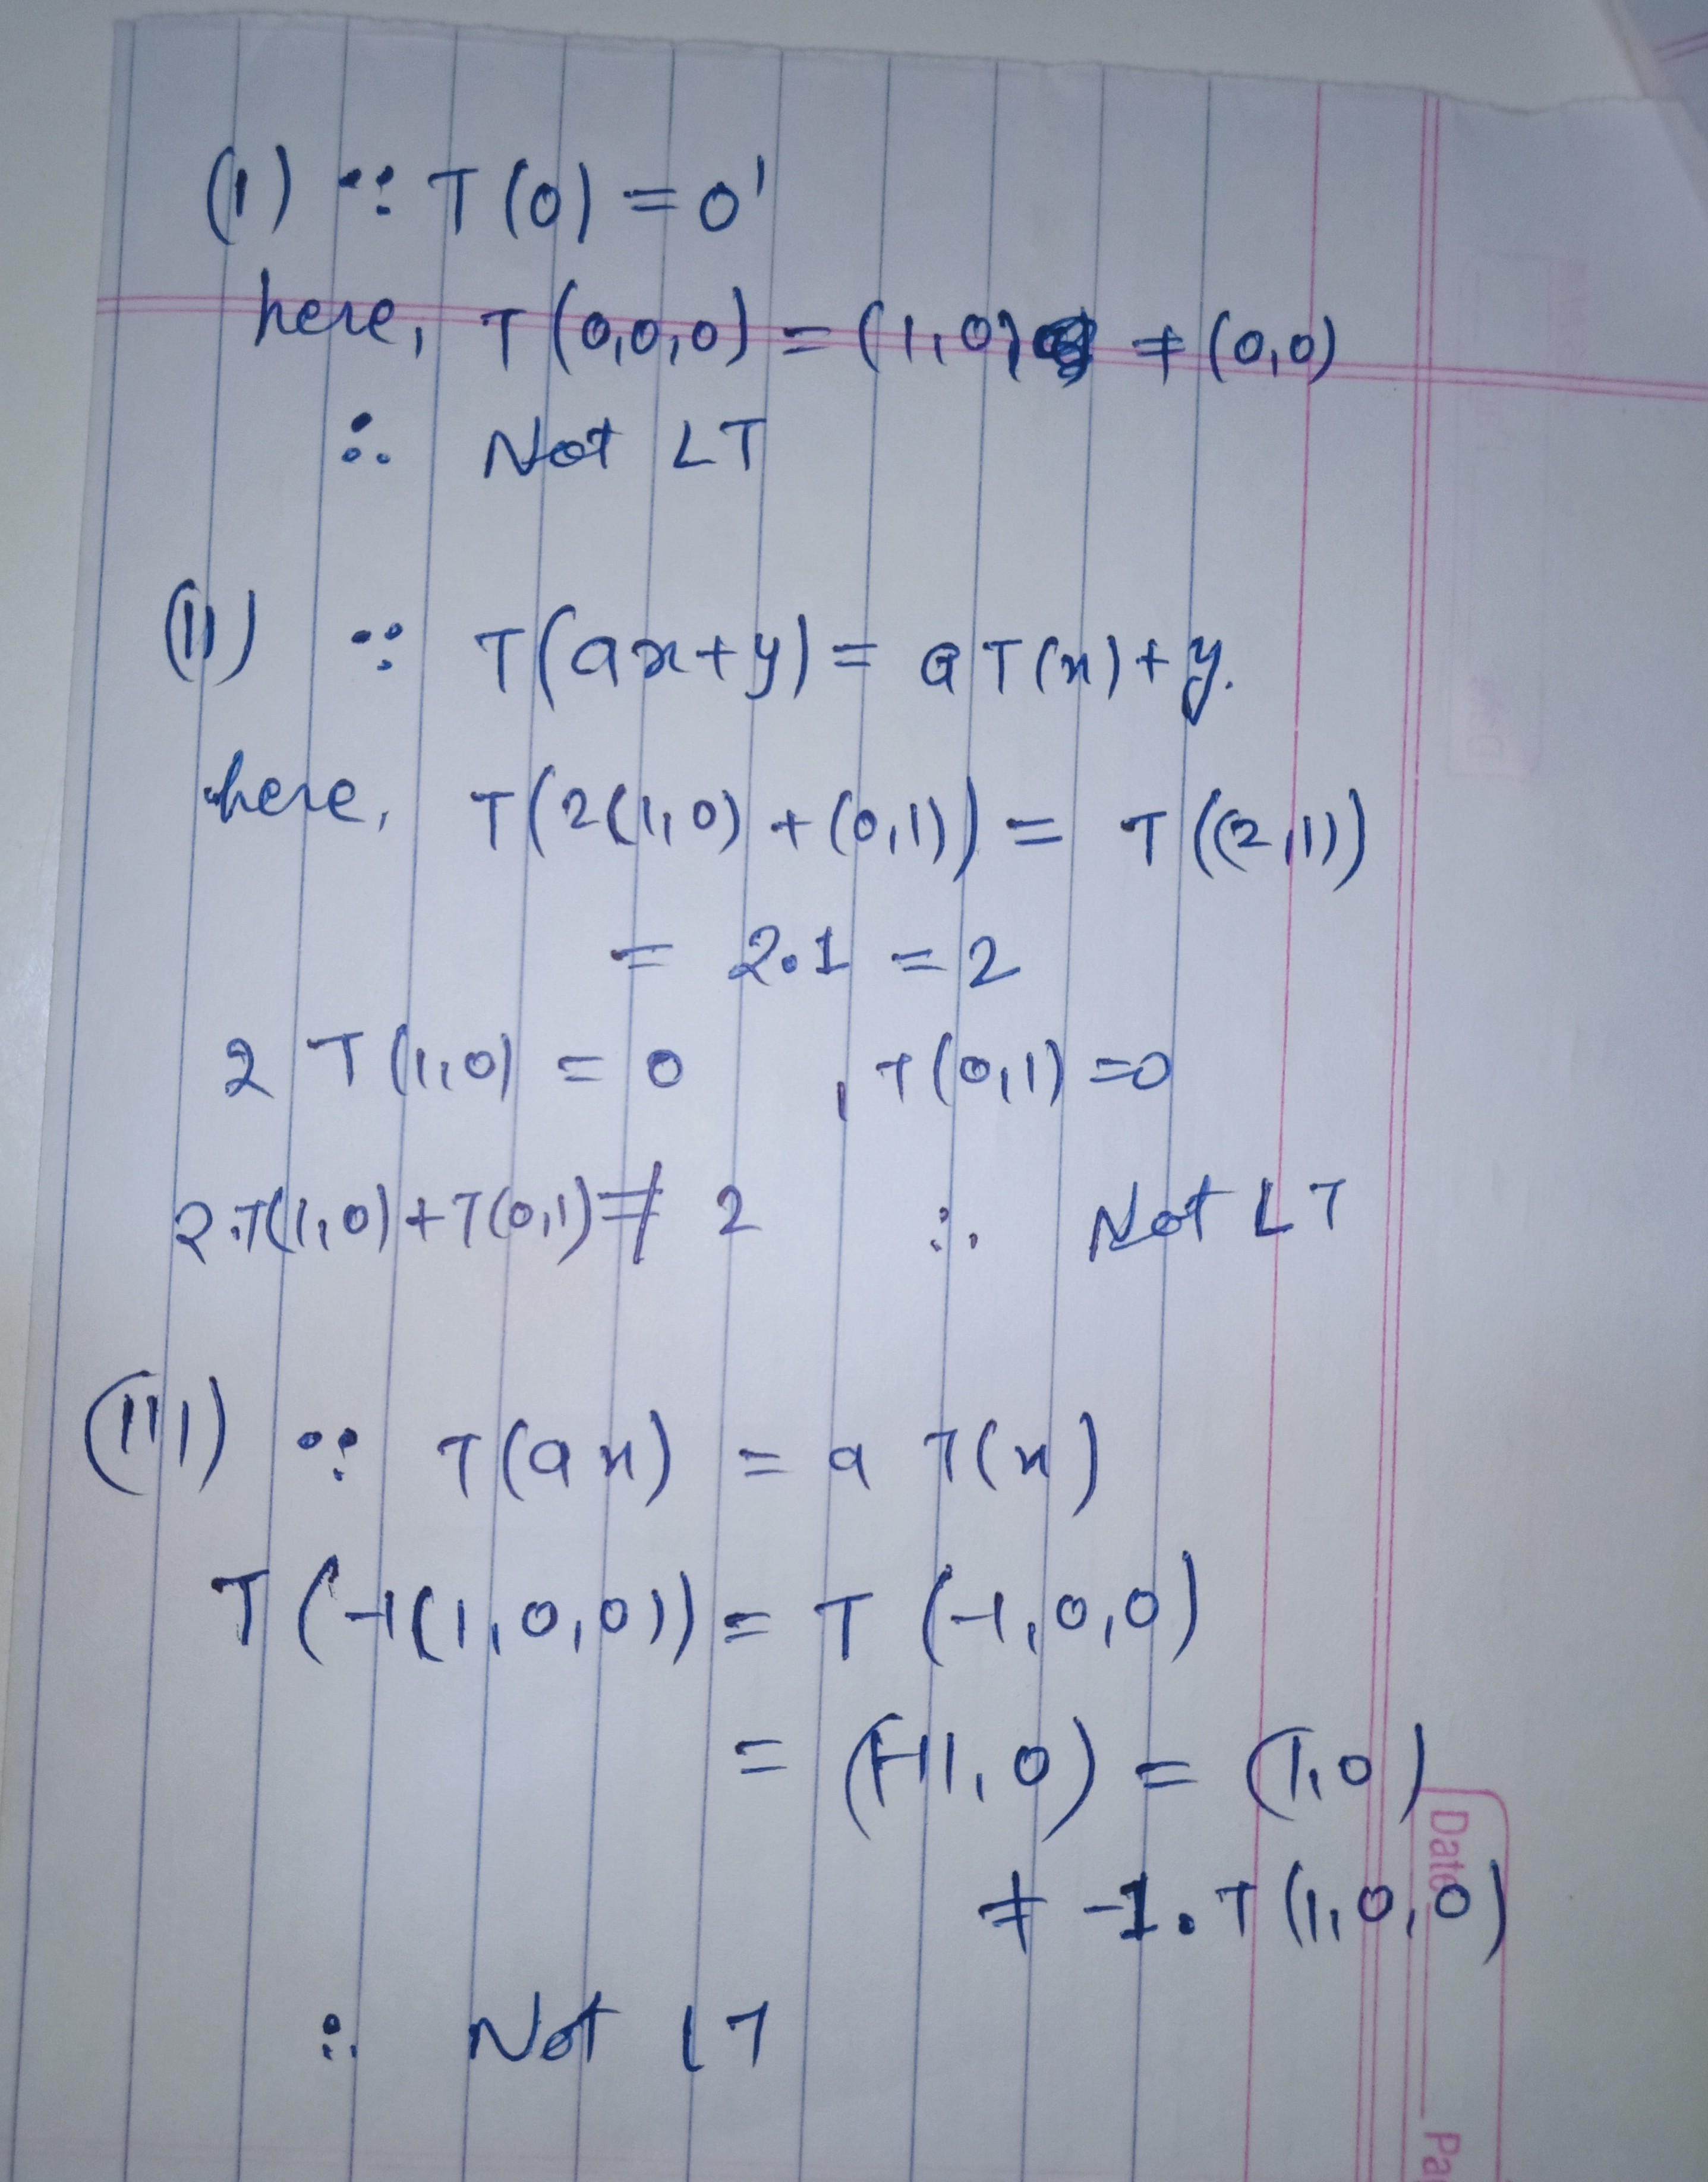 (I) ∵ T(0) = 0'
here, T(0,0,0) = (1,0) ≠ (0,0)
∴ Not LT
(II) ∵ T(ax+y) = aT(x)+y.
here, T(2(1,0) + (0,1)) = T((2,1))
= 2.1 = 2
2 T(1,0) = 0 , T(0,1) = 0
2.T(1,0)+T(0,1) ≠ 2 ∴ Not LT
(III) ∵ T(ax) = a T(x)
T(-1(1,0,0)) = T(-1,0,0)
= (|-1|,0) = (1,0)
≠ -1.T(1,0,0)
∴ Not LT
Date
Pa